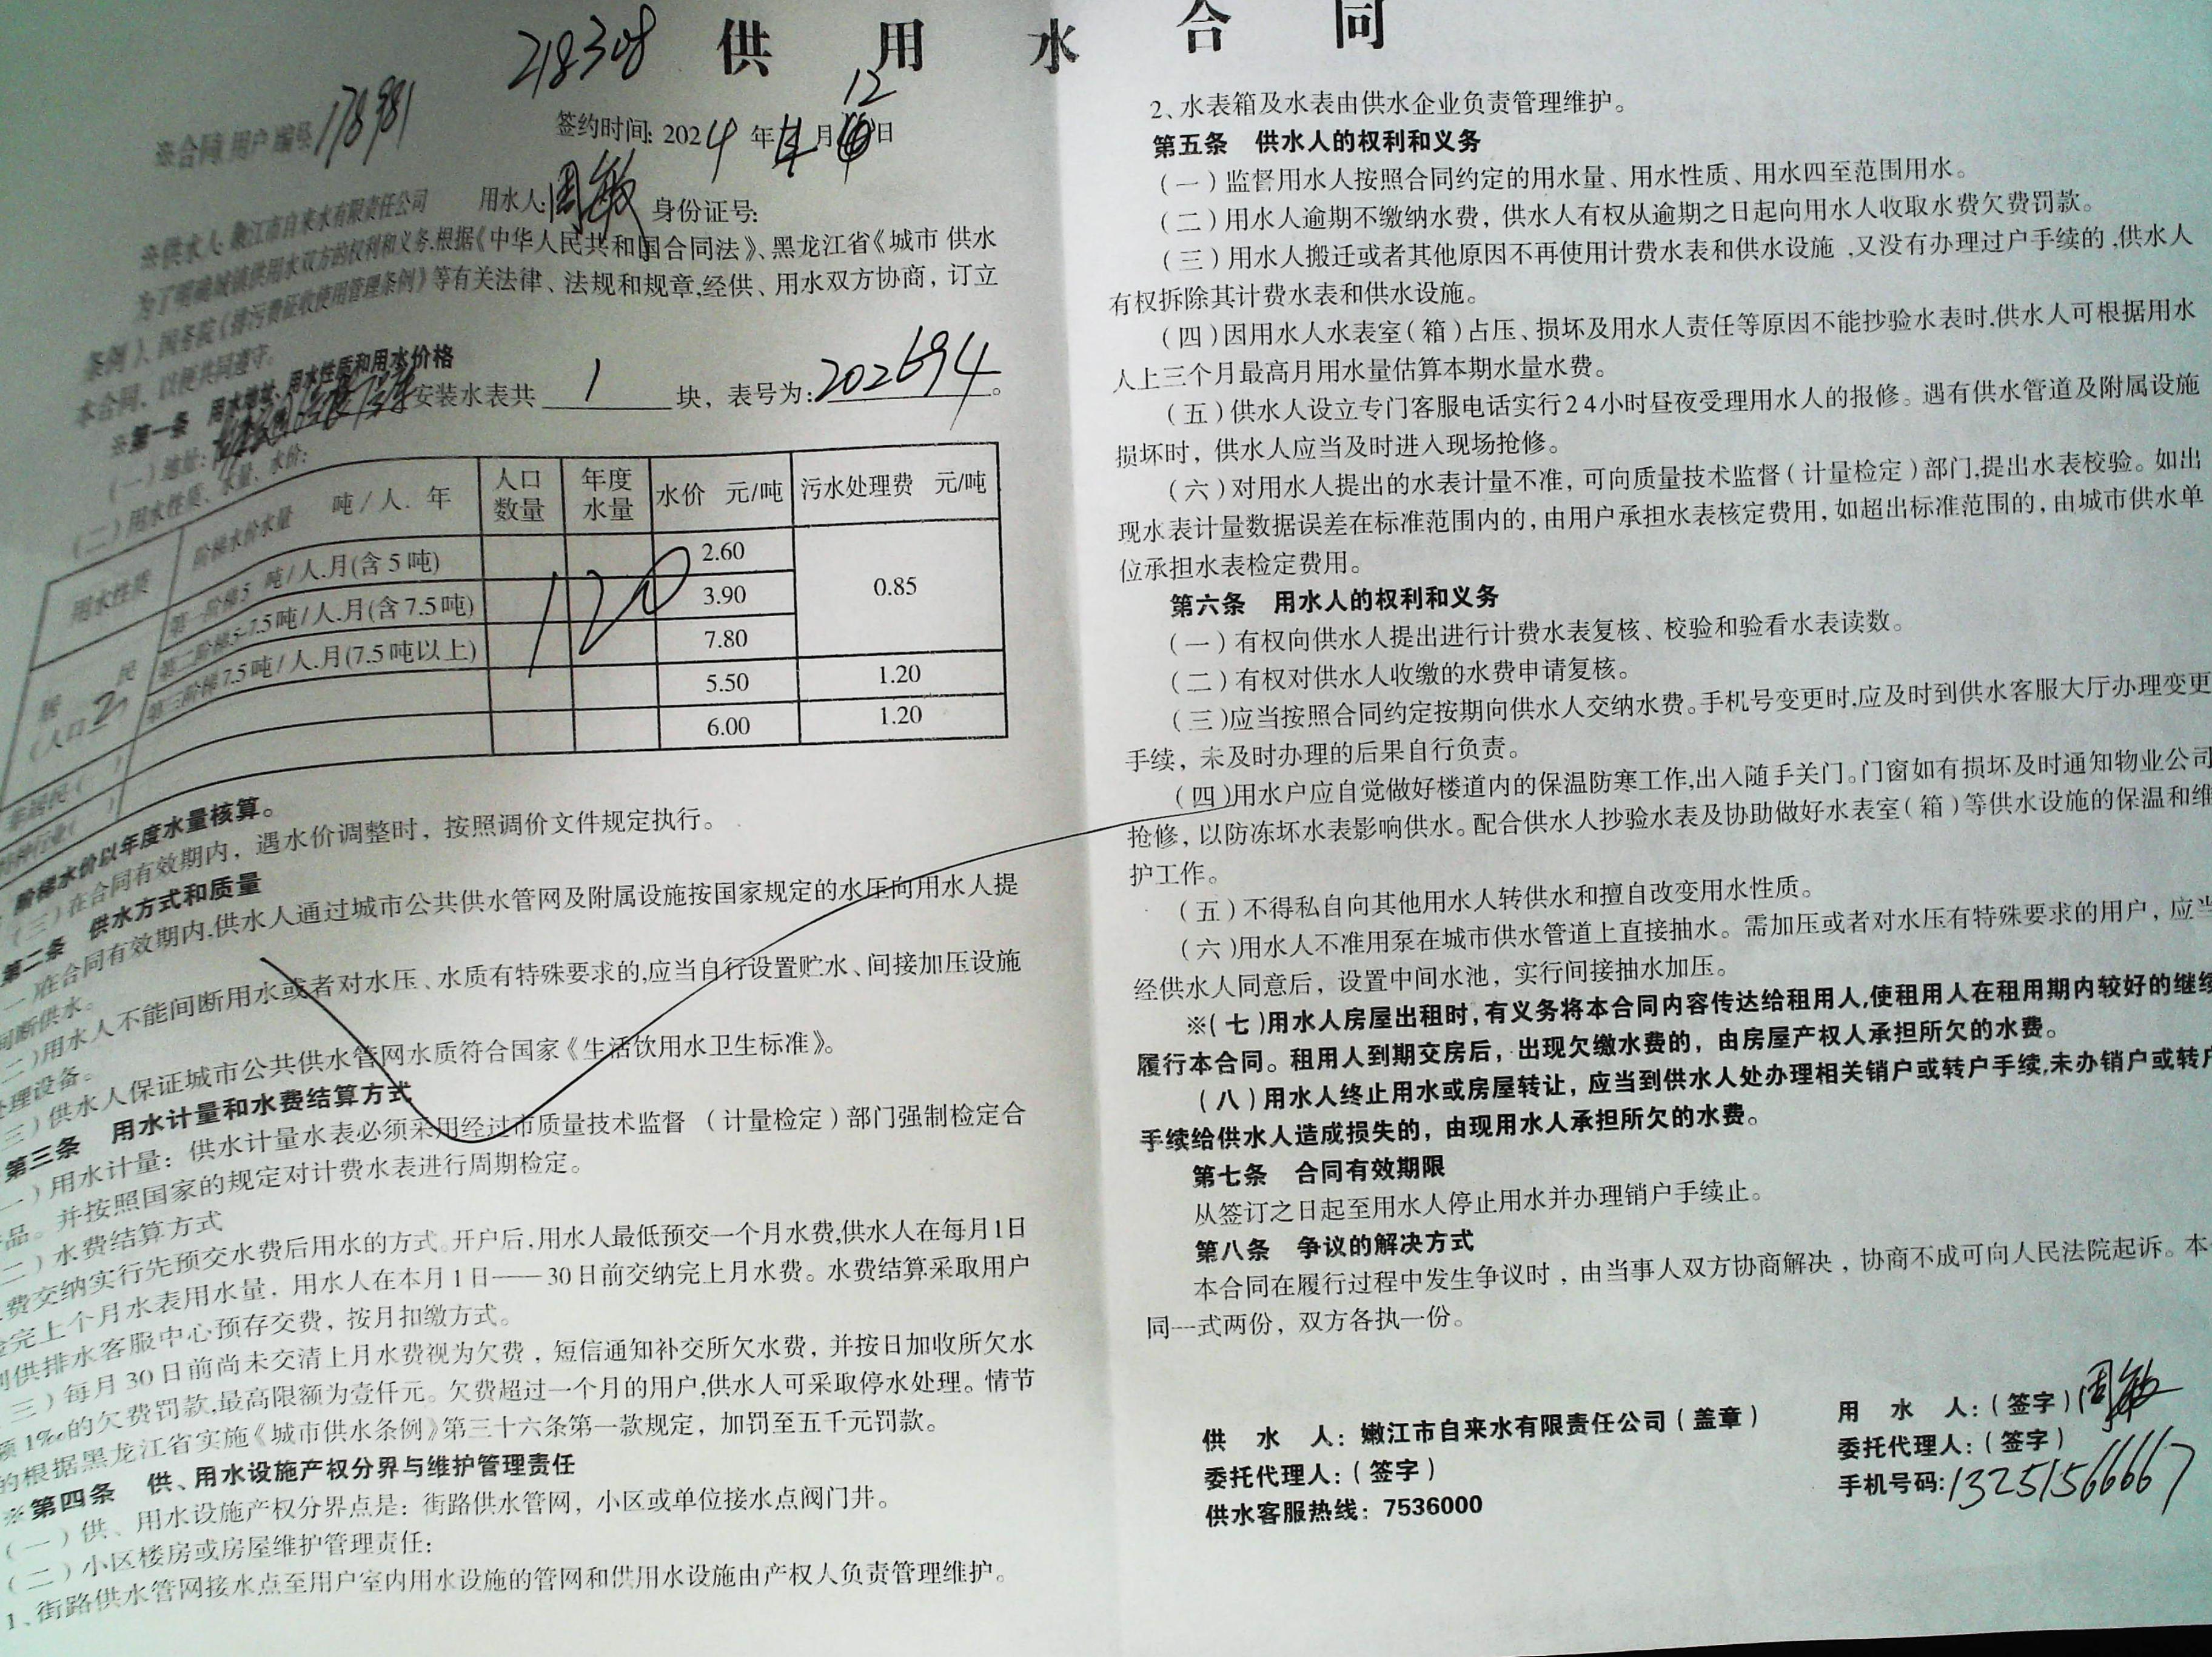 218308 供用水合同
※合同用户编号178981
签约时间: 2024年 月 日
12
※供水人: 嫩江市自来水有限责任公司 用水人: 周敏 身份证号:
为了明确城镇供用水双方的权利和义务,根据《中华人民共和国合同法》、黑龙江省《城市供水
条例》、国务院《排污费征收使用管理条例》等有关法律、法规和规章,经供、用水双方协商，订立
本合同，以便共同遵守。
※第一条 用水地址、用水性质和用水价格
(一)地址: 安装水表共 1 块，表号为: 202694。
(二)用水性质、水量、水价:
用水性质 阶梯水价水量 吨/人.年 人口数量 年度水量 水价 元/吨 污水处理费 元/吨
居民 (人口2) 第一阶梯5吨/人.月(含5吨) 2.60 0.85
第二阶梯5-7.5吨/人.月(含7.5吨) 120 3.90
第三阶梯7.5吨/人.月(7.5吨以上) 7.80
非居民( ) 5.50 1.20
特种行业( ) 6.00 1.20
阶梯水价以年度水量核算。
(三)在合同有效期内，遇水价调整时，按照调价文件规定执行。
第二条 供水方式和质量
一)在合同有效期内,供水人通过城市公共供水管网及附属设施按国家规定的水压向用水人提
间断供水。
二)用水人不能间断用水或者对水压、水质有特殊要求的,应当自行设置贮水、间接加压设施
处理设备。
三)供水人保证城市公共供水管网水质符合国家《生活饮用水卫生标准》。
第三条 用水计量和水费结算方式
一)用水计量：供水计量水表必须采用经过市质量技术监督（计量检定）部门强制检定合
品。并按照国家的规定对计费水表进行周期检定。
二)水费结算方式
费交纳实行先预交水费后用水的方式。开户后,用水人最低预交一个月水费,供水人在每月1日
完上个月水表用水量，用水人在本月1日——30日前交纳完上月水费。水费结算采取用户
供排水客服中心预存交费，按月扣缴方式。
三)每月30日前尚未交清上月水费视为欠费，短信通知补交所欠水费，并按日加收所欠水
额1‰的欠费罚款,最高限额为壹仟元。欠费超过一个月的用户,供水人可采取停水处理。情节
的根据黑龙江省实施《城市供水条例》第三十六条第一款规定，加罚至五千元罚款。
※第四条 供、用水设施产权分界与维护管理责任
(一)供、用水设施产权分界点是：街路供水管网，小区或单位接水点阀门井。
(二)小区楼房或房屋维护管理责任:
1、街路供水管网接水点至用户室内用水设施的管网和供用水设施由产权人负责管理维护。
2、水表箱及水表由供水企业负责管理维护。
第五条 供水人的权利和义务
(一)监督用水人按照合同约定的用水量、用水性质、用水四至范围用水。
(二)用水人逾期不缴纳水费，供水人有权从逾期之日起向用水人收取水费欠费罚款。
(三)用水人搬迁或者其他原因不再使用计费水表和供水设施,又没有办理过户手续的,供水人
有权拆除其计费水表和供水设施。
(四)因用水人水表室(箱)占压、损坏及用水人责任等原因不能抄验水表时,供水人可根据用水
人上三个月最高月用水量估算本期水量水费。
(五)供水人设立专门客服电话实行24小时昼夜受理用水人的报修。遇有供水管道及附属设施
损坏时，供水人应当及时进入现场抢修。
(六)对用水人提出的水表计量不准，可向质量技术监督(计量检定)部门,提出水表校验。如出
现水表计量数据误差在标准范围内的，由用户承担水表核定费用，如超出标准范围的，由城市供水单
位承担水表检定费用。
第六条 用水人的权利和义务
(一)有权向供水人提出进行计费水表复核、校验和验看水表读数。
(二)有权对供水人收缴的水费申请复核。
(三)应当按照合同约定按期向供水人交纳水费。手机号变更时,应及时到供水客服大厅办理变更
手续，未及时办理的后果自行负责。
(四)用水户应自觉做好楼道内的保温防寒工作,出入随手关门。门窗如有损坏及时通知物业公司
抢修，以防冻坏水表影响供水。配合供水人抄验水表及协助做好水表室(箱)等供水设施的保温和维
护工作。
(五)不得私自向其他用水人转供水和擅自改变用水性质。
(六)用水人不准用泵在城市供水管道上直接抽水。需加压或者对水压有特殊要求的用户，应当
经供水人同意后，设置中间水池，实行间接抽水加压。
※(七)用水人房屋出租时,有义务将本合同内容传达给租用人,使租用人在租用期内较好的继续
履行本合同。租用人到期交房后，出现欠缴水费的，由房屋产权人承担所欠的水费。
(八)用水人终止用水或房屋转让，应当到供水人处办理相关销户或转户手续,未办销户或转户
手续给供水人造成损失的，由现用水人承担所欠的水费。
第七条 合同有效期限
从签订之日起至用水人停止用水并办理销户手续止。
第八条 争议的解决方式
本合同在履行过程中发生争议时，由当事人双方协商解决，协商不成可向人民法院起诉。本
同一式两份，双方各执一份。
供 水 人：嫩江市自来水有限责任公司(盖章)
委托代理人：(签字)
供水客服热线：7536000
用 水 人：(签字)周敏
委托代理人：(签字)
手机号码:13251566667